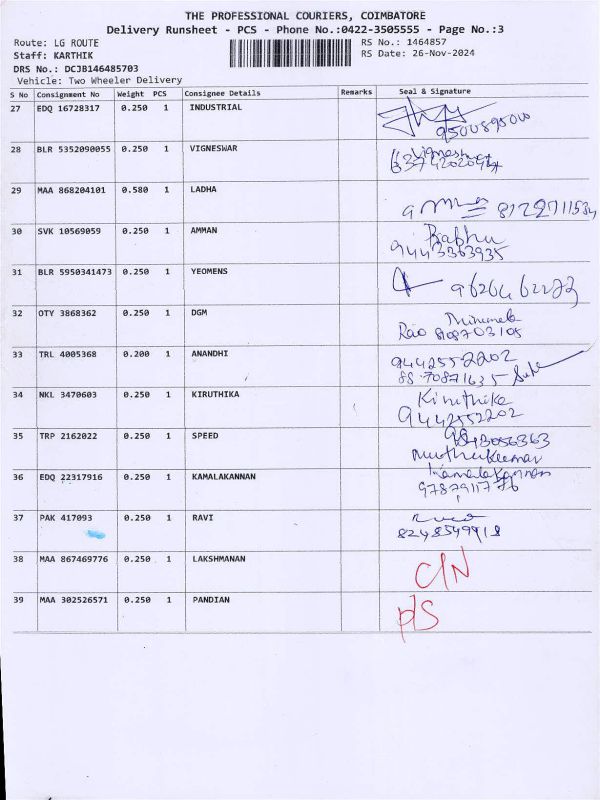 THE PROFESSIONAL COURIERS, COIMBATORE
Delivery Runsheet - PCS - Phone No.:0422-3505555 - Page No.:3
Route: LG ROUTE
RS No.: 1464857
Staff: KARTHIK
RS Date: 26-Nov-2024
DRS No.: DCJB146485703
Vehicle: Two Wheeler Delivery
S No Consignment No Weight PCS Consignee Details Remarks Seal & Signature
27 EDQ 16728317 0.250 1 INDUSTRIAL
9500895000
28 BLR 5352090055 0.250 1 VIGNESWAR
29 MAA 868204101 0.580 1 LADHA
8122711534
30 SVK 10569059 0.250 1 AMMAN
Prabhu
9443363935
31 BLR 5950341473 0.250 1 YEOMENS
32 OTY 3868362 0.250 1 DGM
Rao 8108703105
33 TRL 4005368 0.200 1 ANANDHI
9442552202
34 NKL 3470603 0.250 1 KIRUTHIKA
Kiruthika
9442552202
35 TRP 2162022 0.250 1 SPEED
9843056363
Muthukumar
36 EDQ 22317916 0.250 1 KAMALAKANNAN
Kamalakannan
37 PAK 417093 0.250 1 RAVI
8248549918
38 MAA 867469776 0.250 1 LAKSHMANAN
C/N
39 MAA 302526571 0.250 1 PANDIAN
P/S